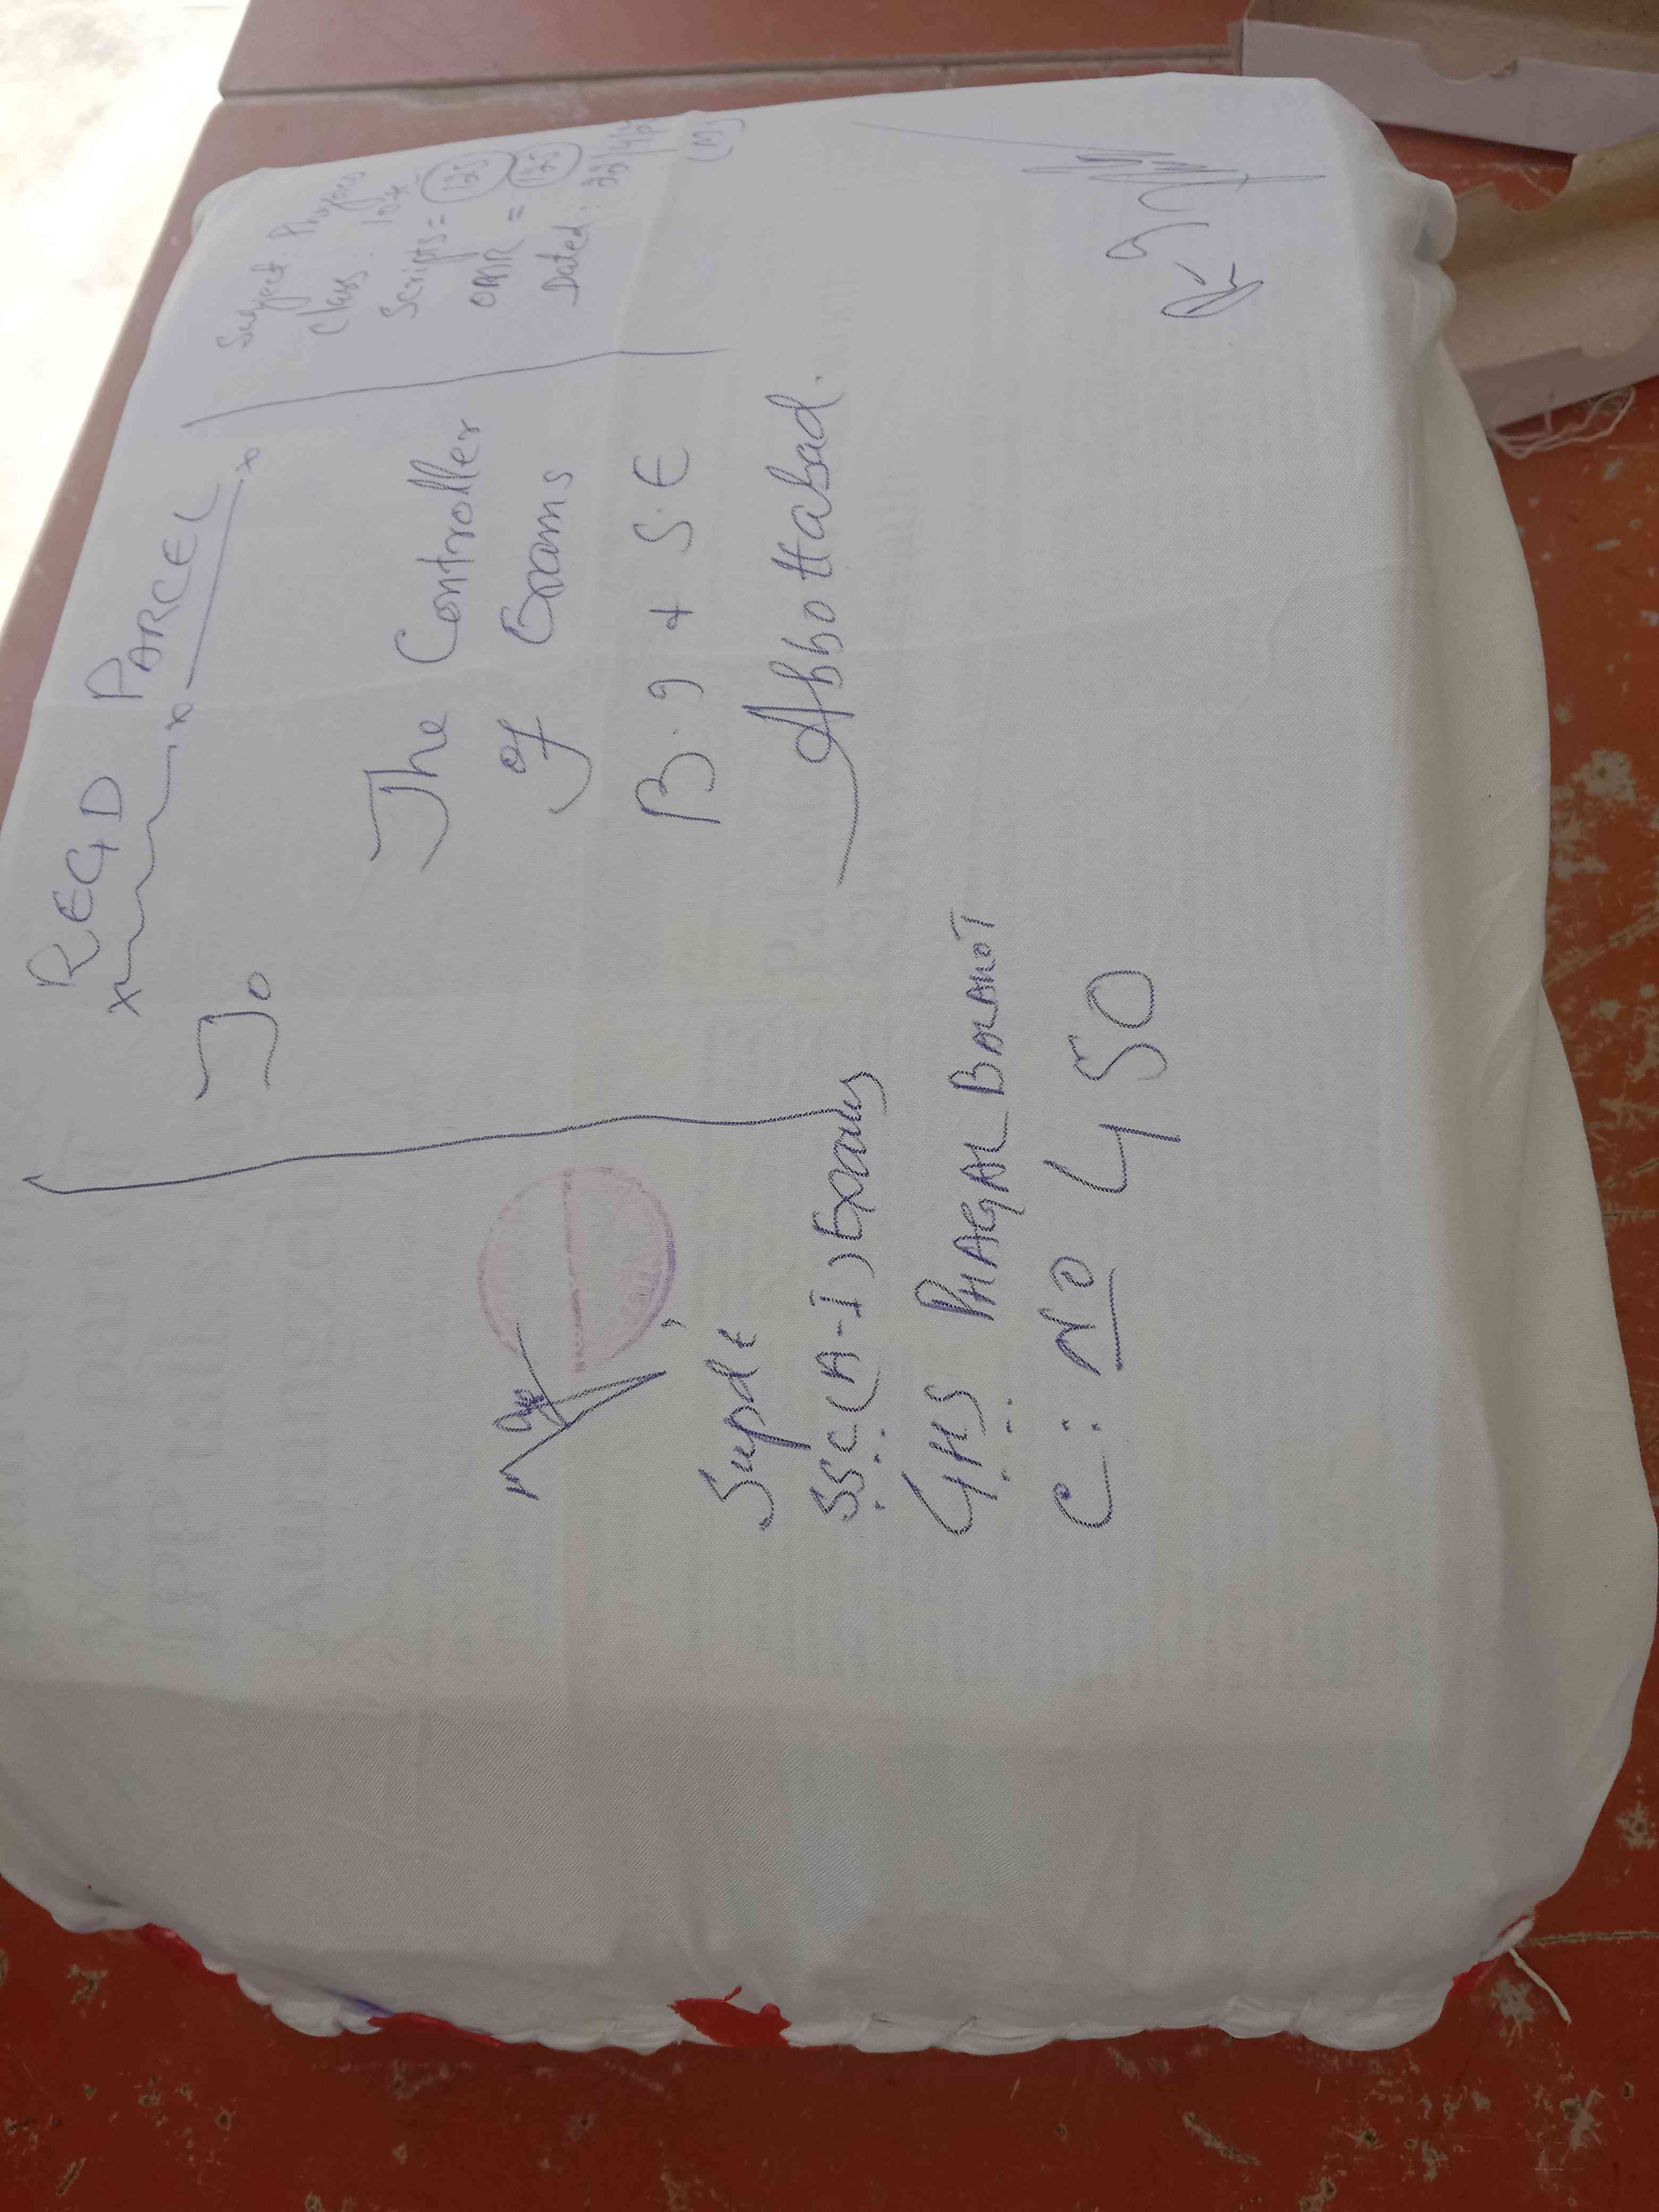 REGD PARCEL
To
The Controller
of Exams
B.I & S.E
Abbottabad.
Subject: Physics
Class: 10th
Scripts = 125
OMR = 125
Dated: 23/4/2
(M)
Supdt
SSC(A-I) Exams
GHS PHAGAL BALAKOT
C: No 450